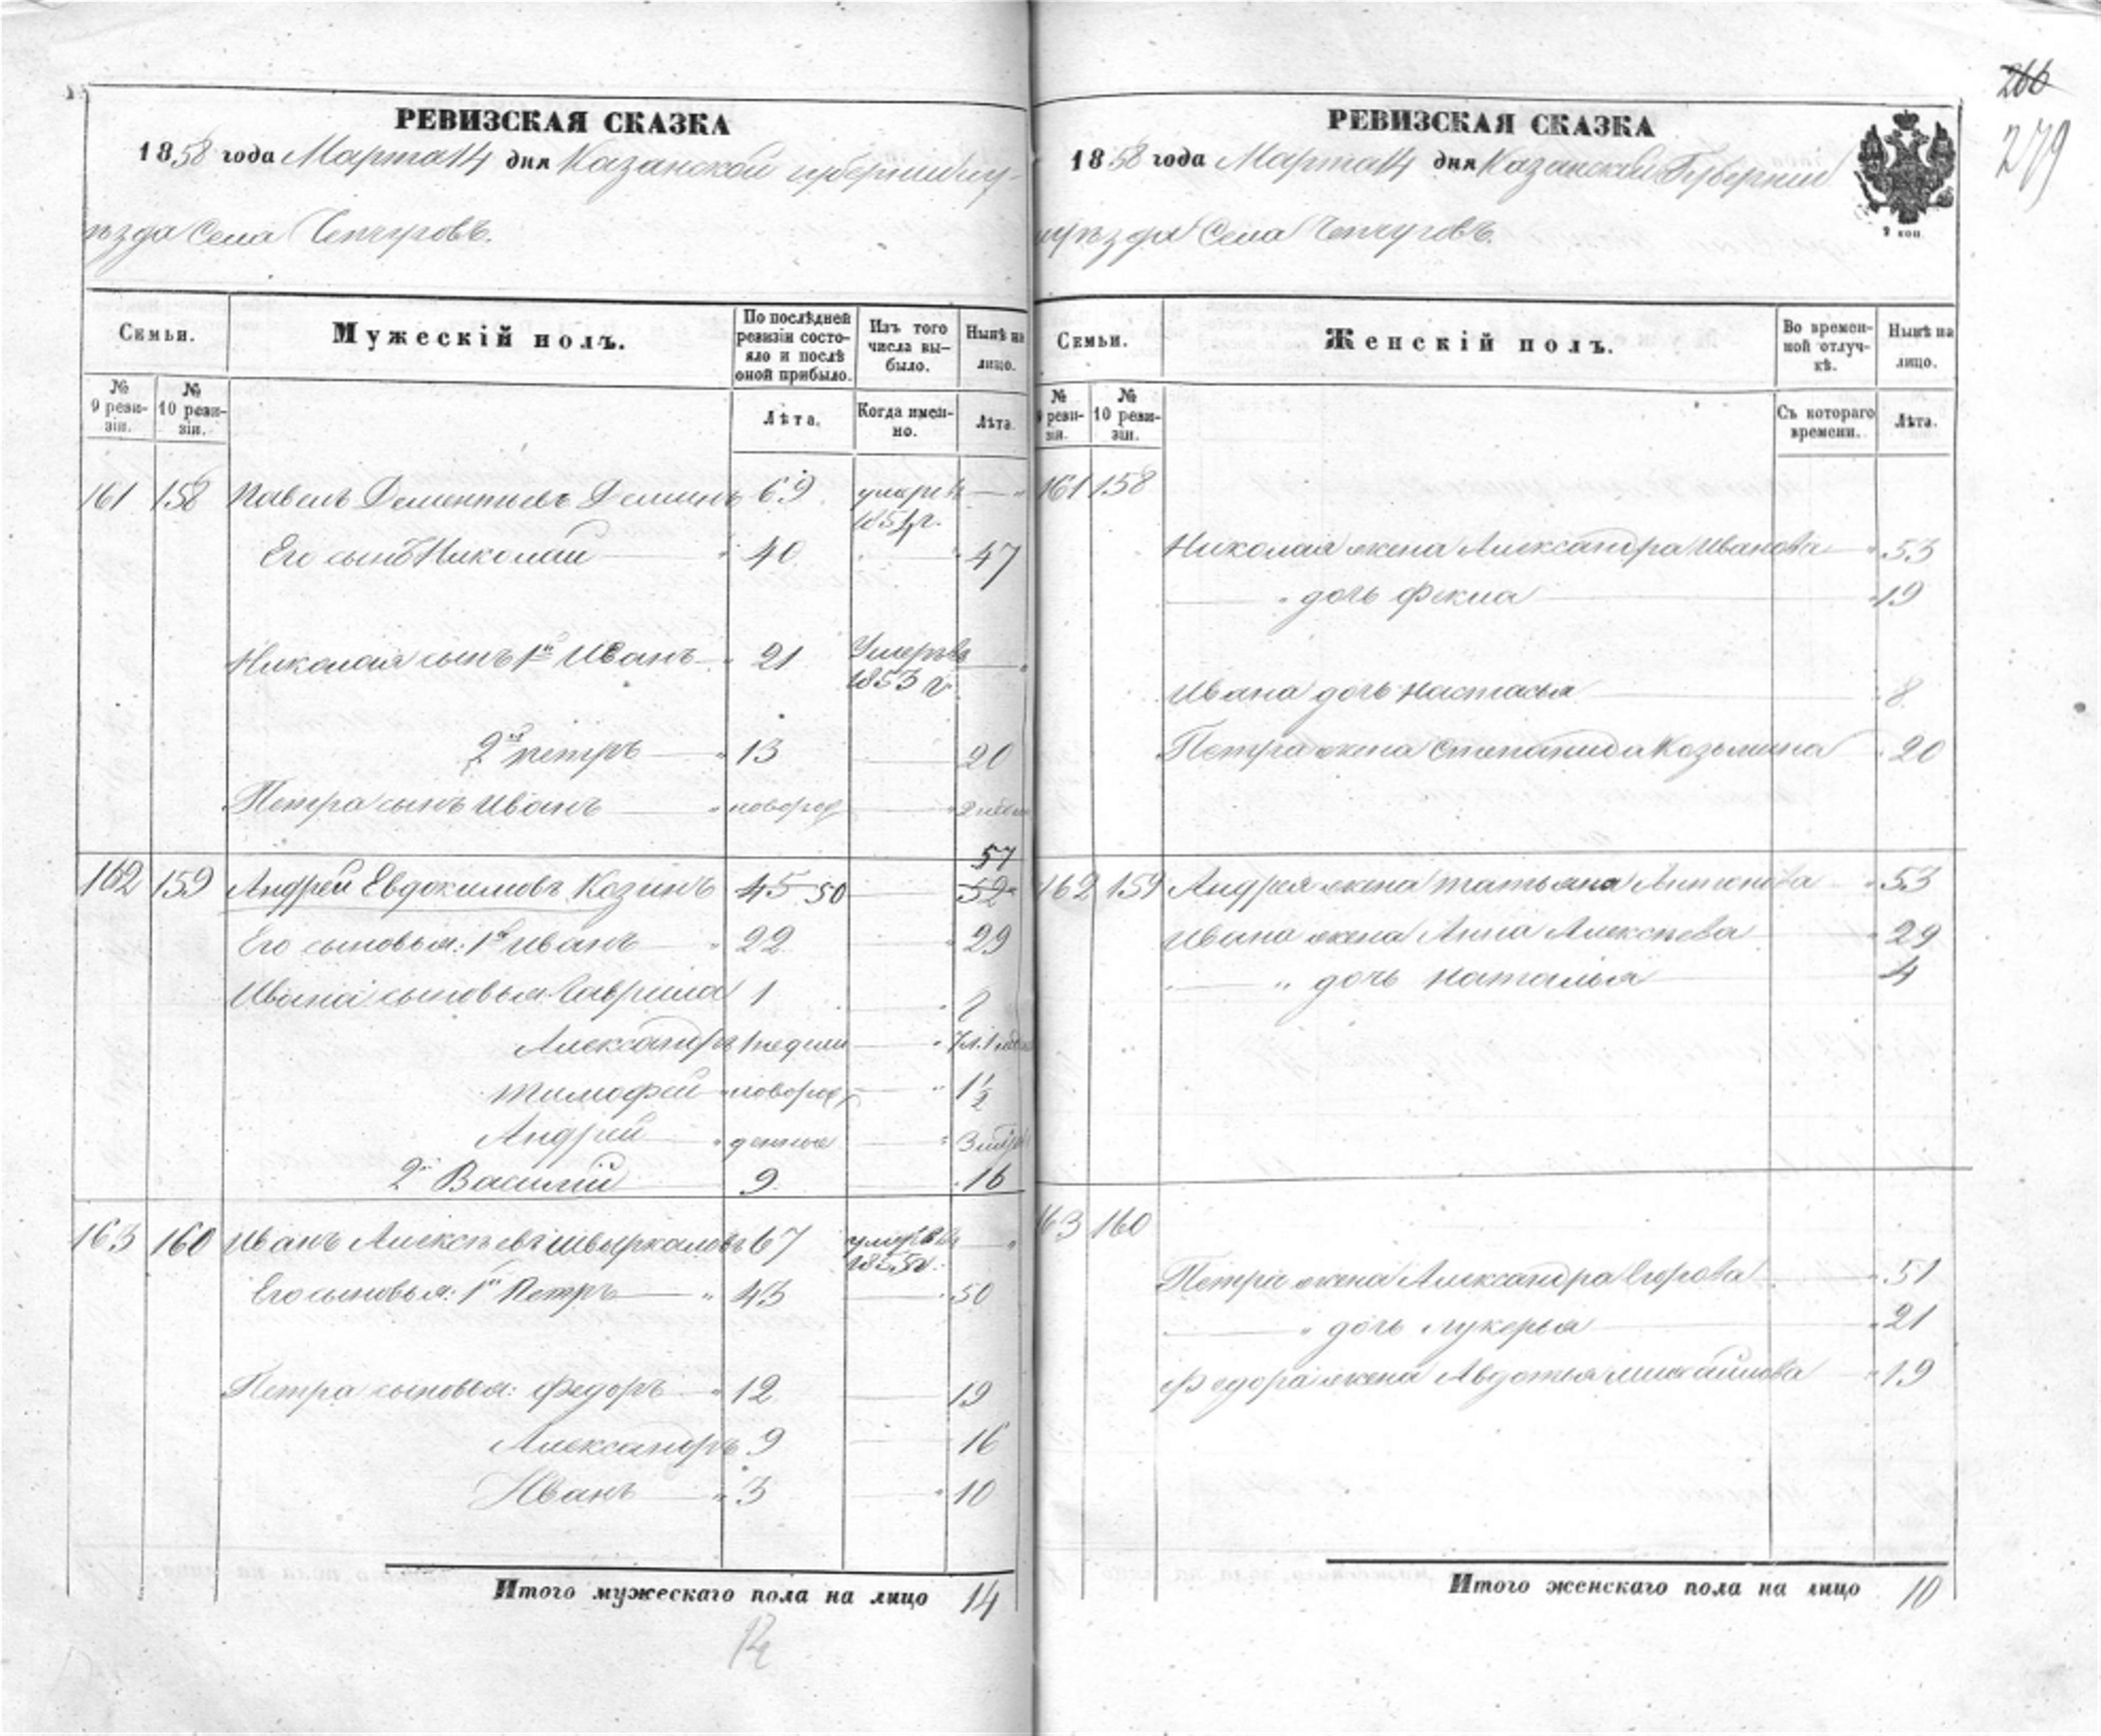 266
279
РЕВИЗСКАЯ СКАЗКА
1858 года Марта 14 дня Казанской губернии и у-
ѣзда Села Чепчуговъ.
Семьи. Мужескій полъ. По послѣдней ревизіи состояло и послѣ оной прибыло. Изъ того числа выбыло. Нынѣ на лицо.
№ 9 ревизіи. № 10 ревизіи. Лѣта. Когда именно. Лѣта.
161 158 Павелъ Дементьевъ Деминъ 69 умеръ въ 1851 г.
Его сынъ Николай 40 47
Николая сынъ 1й Иванъ 21 Умеръ въ 1853 г.
2й Петръ 13 20
Петра сынъ Иванъ новорож
57
162 159 Андрей Евдокимовъ Козинъ 45 50 52
Его сыновья: 1й Иванъ 22 29
Ивана сыновья: Гаврила 1 8
Александръ 1 недели
Тимофей новорож 1½
Андрей
2й Василій 9 16
163 160 Иванъ Алексѣевъ Швыркаловъ 67 умеръ въ 1855 г.
Его сыновья: 1й Петръ 43 50
Петра сыновья: Федоръ 12 19
Александръ 9 16
Иванъ 3 10
Итого мужескаго пола на лицо 14
РЕВИЗСКАЯ СКАЗКА
1858 года Марта 14 дня Казанской Губерніи
и уѣзда Села Чепчуговъ.
2 коп.
Семьи. Женскій полъ. Во временной отлучкѣ. Нынѣ на лицо.
№ 9 ревизіи. № 10 ревизіи. Съ котораго времени. Лѣта.
161 158
Николая жена Александра Иванова 53
дочь Фекла 19
Ивана дочь Настасья 8
Петра жена Степанида Козьмина 20
162 159 Андрея жена Татьяна Антонова 53
Ивана жена Анна Алексѣева 29
дочь Наталья 4
163 160
Петра жена Александра Егорова 51
дочь Лукерья 21
Федора жена Авдотья Михайлова 19
Итого женскаго пола на лицо 10